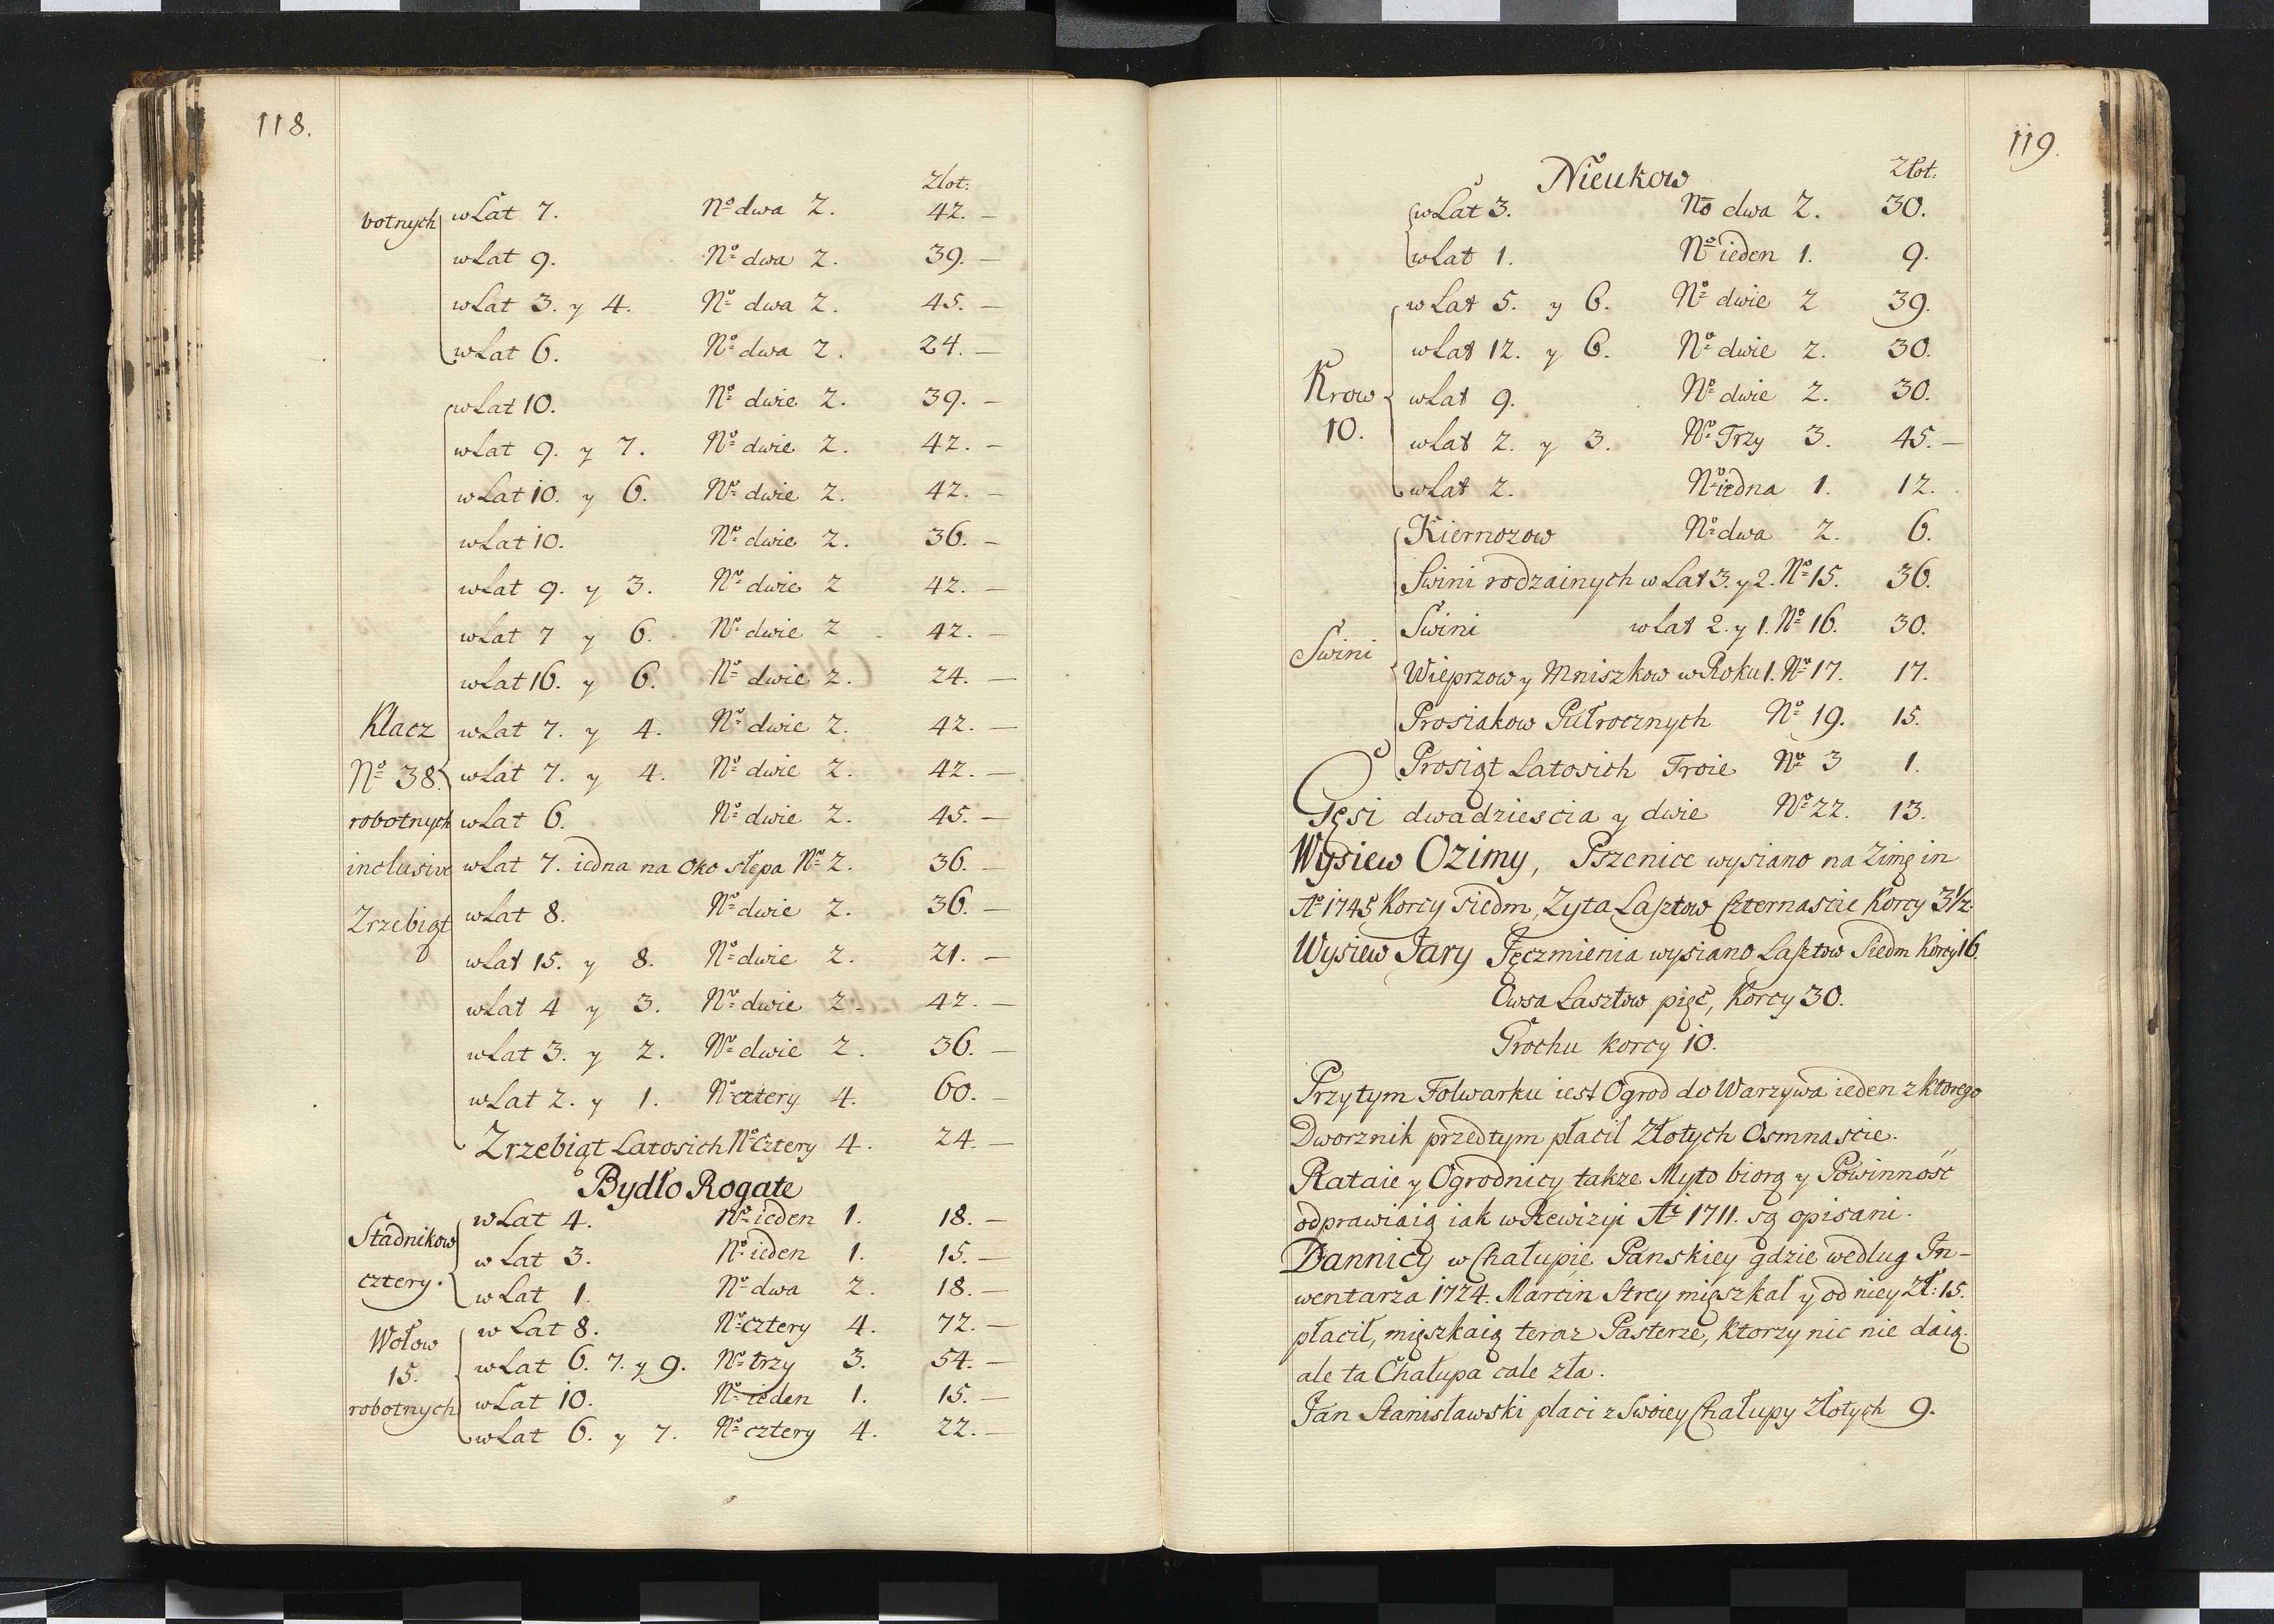 118.
Złot:
botnych w Lat 7. No dwa 2. 42. —
w Lat 9. No dwa 2. 39. —
w Lat 3. y 4. No dwa 2. 45. —
w Lat 6. No dwa 2. 24. —
w Lat 10. No dwie 2. 39. —
w Lat 9. y 7. No dwie 2. 42. —
w Lat 10. y 6. No dwie 2. 42. —
w Lat 10. No dwie 2. 36. —
w Lat 9. y 3. No dwie 2 42. —
w Lat 7 y 6. No dwie 2. 42. —
w Lat 16. y 6. No dwie 2. 24. —
Klacz w Lat 7. y 4. No dwie 2. 42. —
No 38. w Lat 7. y 4. No dwie 2. 42. —
robotnych w Lat 6. No dwie 2. 45. —
inclusive w Lat 7. iedna na oko slepa No 2. 36. —
Zrzebiąt w Lat 8. No dwie 2. 36. —
w Lat 15. y 8. No dwie 2. 21. —
w Lat 4 y 3. No dwie 2. 42. —
w Lat 3. y 2. No dwie 2. 36. —
w Lat 2. y 1. No cztery 4. 60. —
Zrzebiąt Latosich No cztery 4. 24. —
Bydło Rogate
Stadnikow w Lat 4. No ieden 1. 18. —
w Lat 3. No ieden 1. 15. —
cztery. w Lat 1. No dwa 2. 18. —
Wołow w Lat 8. No cztery 4. 72. —
15. w Lat 6. 7. y 9. No trzy 3. 54. —
robotnych w Lat 10. No ieden 1. 15. —
w Lat 6. y 7. No cztery 4. 22. —
119.
Nieukow Złot.
w Lat 3. No dwa 2. 30.
w Lat 1. No ieden 1. 9.
w Lat 5. y 6. No dwie 2 39.
w Lat 12. y 6. No dwie 2. 30.
Krow w Lat 9. No dwie 2. 30.
10. w Lat 2. y 3. No Trzy 3. 45. —
w Lat 2. No iedna 1. 12.
Kiernozow No dwa 2. 6.
Swini rodzainych w Lat 3. y 2. No 15. 36.
Swini Swini w Lat 2. y 1. No 16. 30.
Wieprzow y Mniszkow w Roku 1. No 17. 17.
Prosiakow Pułrocznych No 19. 15.
Prosiąt Latosich Troie No 3 1.
Gęsi dwadziescia y dwie No 22. 13.
Wysiew Ozimy, Pszenice wysiano na Zimę in
Ao 1745 Korcy siedm, Zyta Lasztow Czternascie Korcy 3½.
Wysiew Jary Jęczmienia wysiano Lasztow Siedm Korcy 16.
Owsa Lasztow pięć, Korcy 30.
Grochu korcy 10.
Przy tym Folwarku iest Ogrod do Warzywa ieden z ktorego
Dworznik przedtym płacił Złotych Osmnascie.
Rataie y Ogrodnicy takze Myto biorą y Powinność
odprawiaią iak w Rewizyi Ai 1711. są opisani.
Dannicy w Chałupie Panskiey gdzie wedlug In-
wentarza 1724. Marcin Strey mięszkał y od niey Zł: 15.
płacił, mięszkaią teraz Pasterze, ktorzy nic nie daią.
ale ta Chałupa cale zła.
Jan Stanisławski płaci z Swoiey Chałupy Złotych 9.